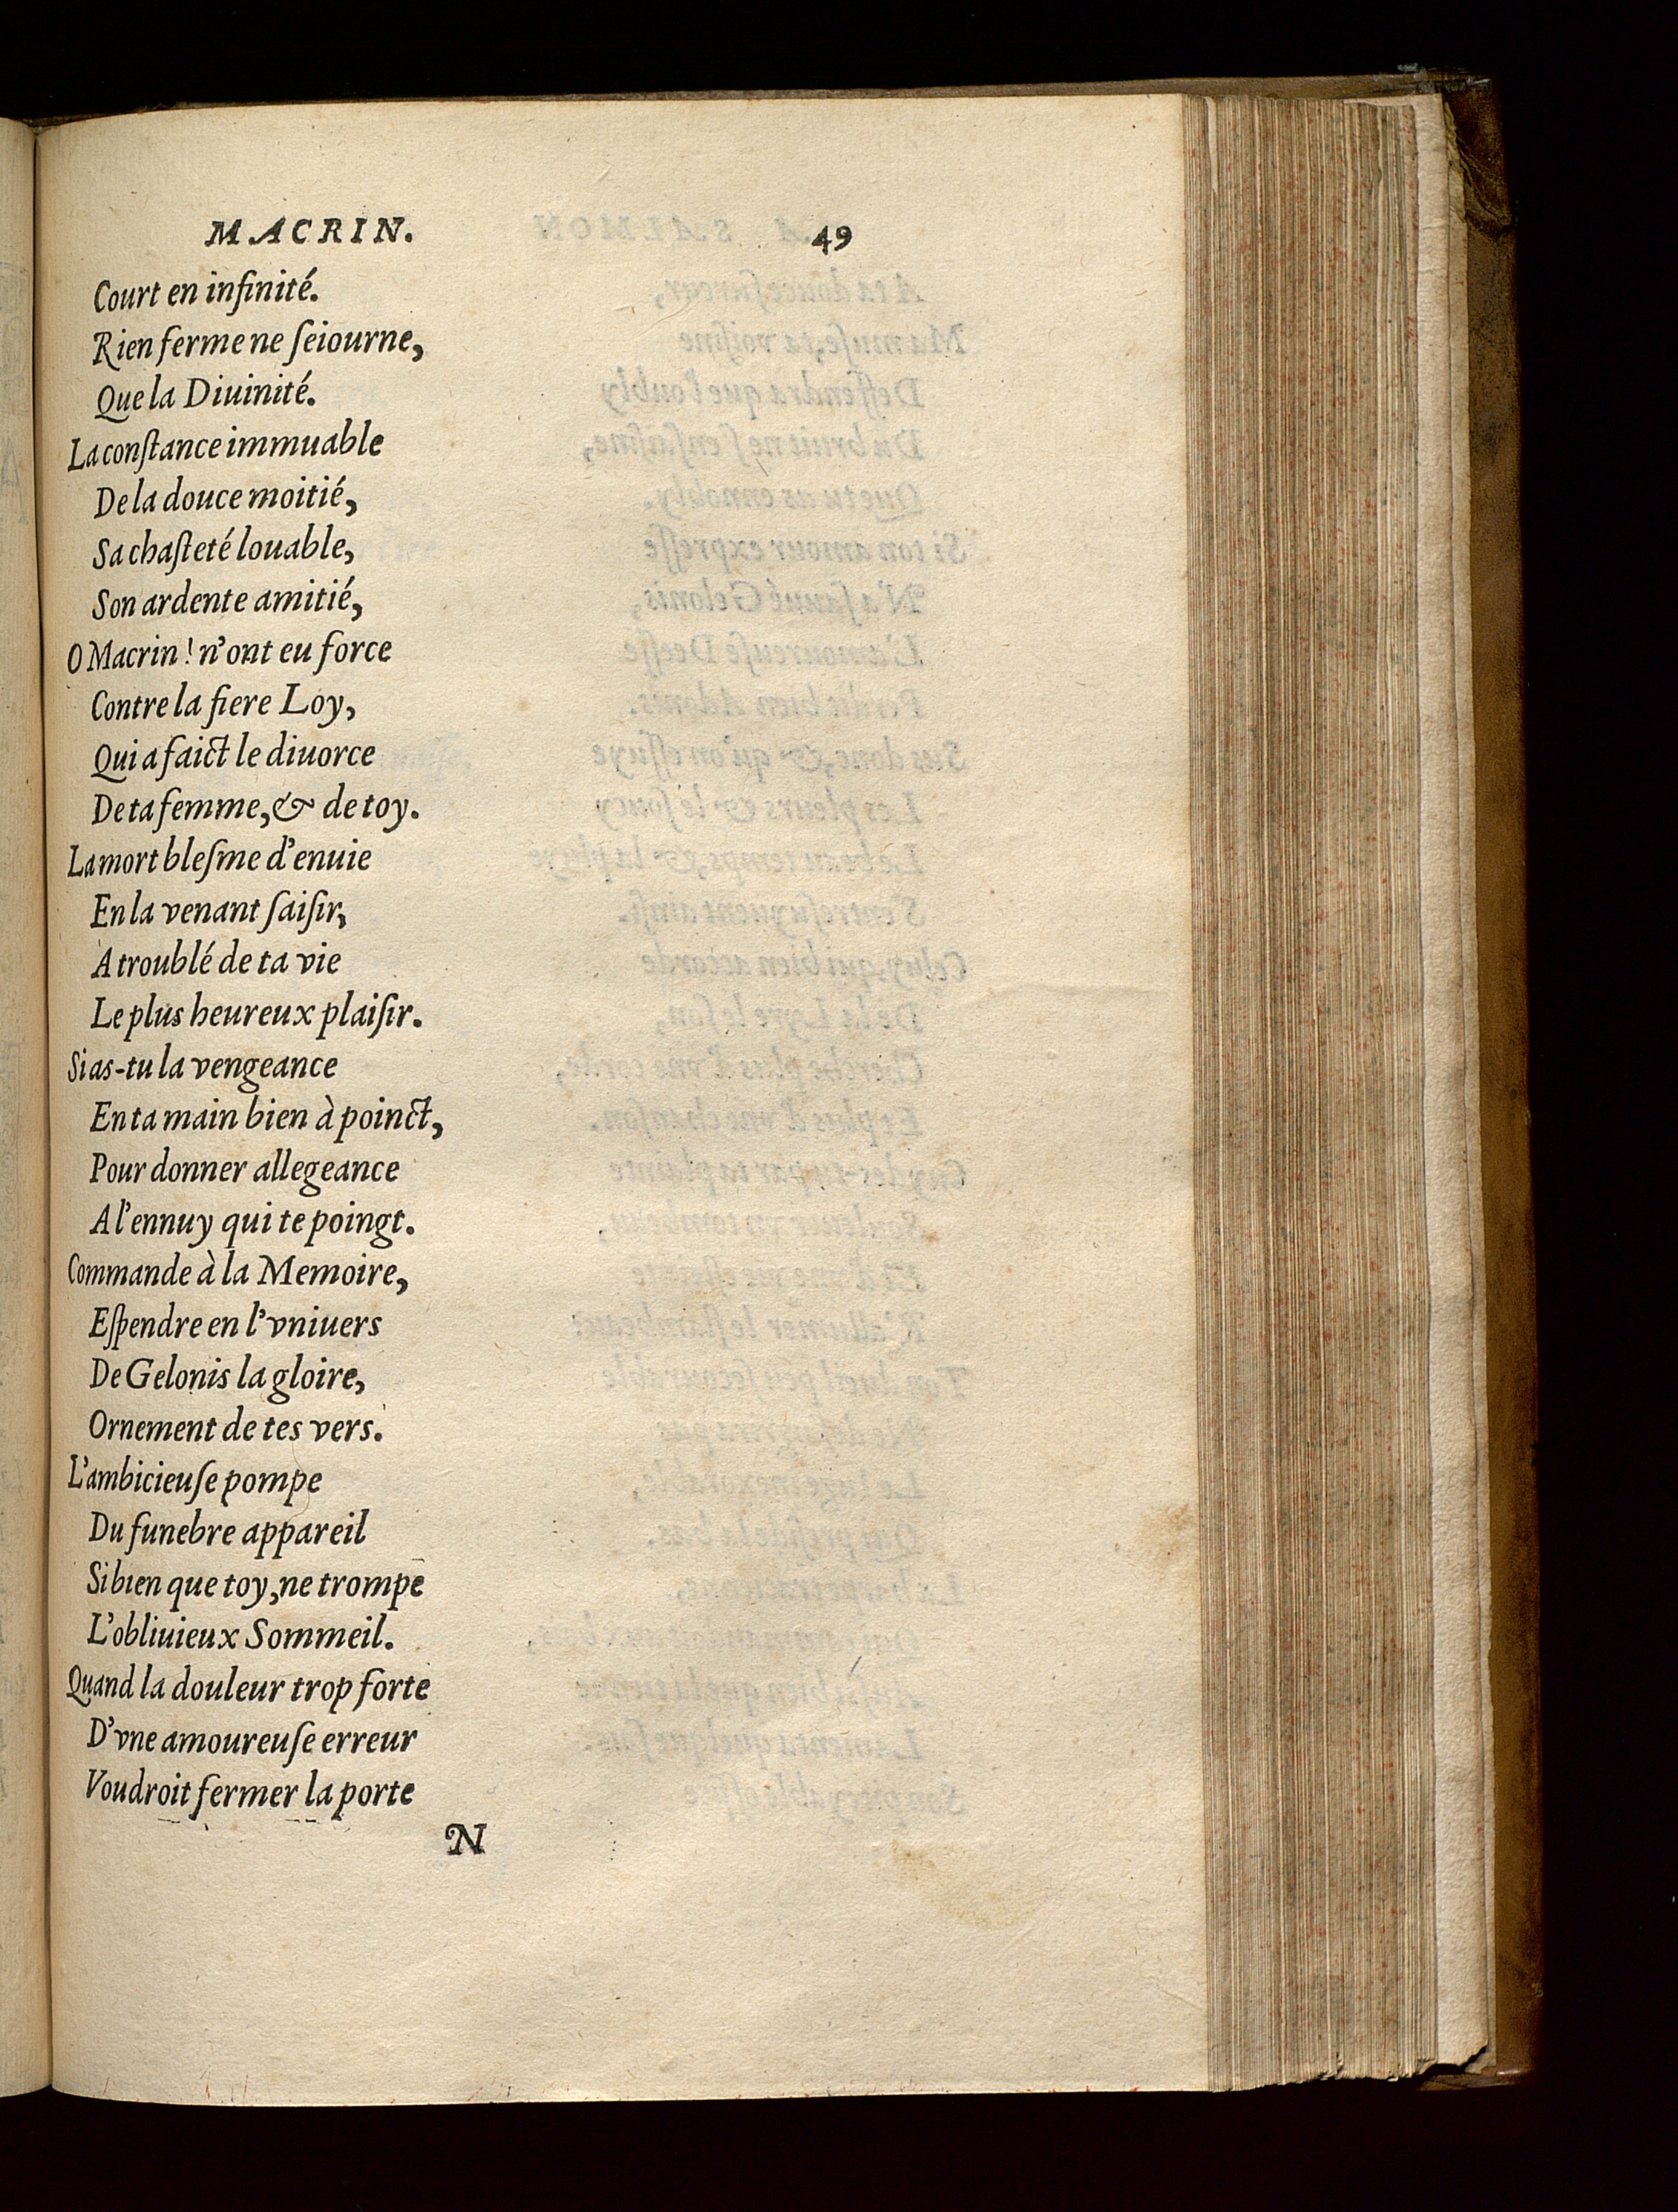 MACRIN. 49
Court en infinité.
Rien ferme ne ſeiourne,
Que la Diuinité.
La conſtance immuable
De la douce moitié,
Sa chaſteté louable,
Son ardente amitié,
O Macrin! n'ont eu force
Contre la fiere Loy,
Qui a faict le diuorce
De ta femme, & de toy.
La mort bleſme d'enuie
En la venant ſaiſir,
A troublé de ta vie
Le plus heureux plaiſir.
Si as-tu la vengeance
En ta main bien à poinct,
Pour donner allegeance
A l'ennuy qui te poingt.
Commande à la Memoire,
Eſpendre en l'vniuers
De Gelonis la gloire,
Ornement de tes vers.
L'ambicieuſe pompe
Du funebre appareil
Si bien que toy, ne trompe
L'obliuieux Sommeil.
Quand la douleur trop forte
D'vne amoureuſe erreur
Voudroit fermer la porte
N